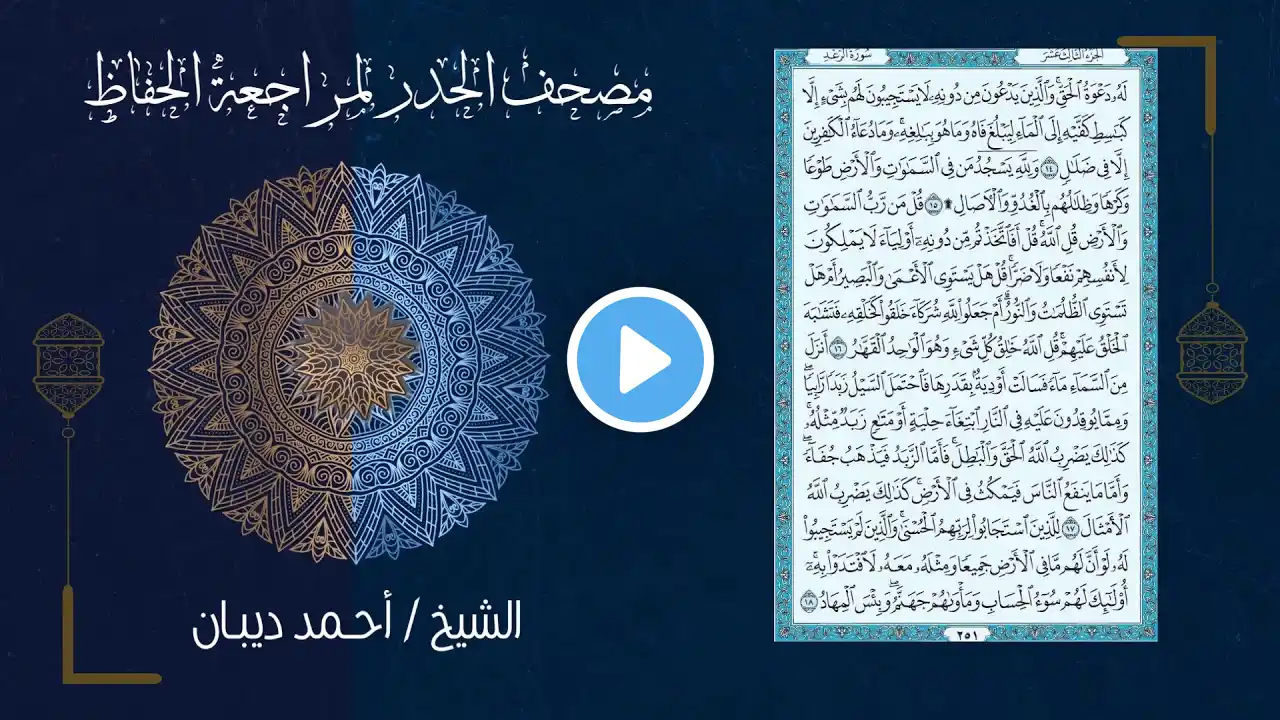 مصحف الحدر لمراجعة الحفاظ
الشيخ / أحمد ديبان
الجزء الثالث عشر
سورة الرعد
لَهُۥ دَعْوَةُ ٱلْحَقِّ ۖ وَٱلَّذِينَ يَدْعُونَ مِن دُونِهِۦ لَا يَسْتَجِيبُونَ لَهُم بِشَىْءٍ إِلَّا
كَبَـٰسِطِ كَفَّيْهِ إِلَى ٱلْمَآءِ لِيَبْلُغَ فَاهُ وَمَا هُوَ بِبَـٰلِغِهِۦ ۚ وَمَا دُعَآءُ ٱلْكَـٰفِرِينَ
إِلَّا فِى ضَلَـٰلٍ ١٤ وَلِلَّهِ يَسْجُدُ مَن فِى ٱلسَّمَـٰوَٰتِ وَٱلْأَرْضِ طَوْعًا
وَكَرْهًا وَظِلَـٰلُهُم بِٱلْغُدُوِّ وَٱلْـَٔاصَالِ ۩ ١٥ قُلْ مَن رَّبُّ ٱلسَّمَـٰوَٰتِ
وَٱلْأَرْضِ قُلِ ٱللَّهُ ۚ قُلْ أَفَٱتَّخَذْتُم مِّن دُونِهِۦٓ أَوْلِيَآءَ لَا يَمْلِكُونَ
لِأَنفُسِهِمْ نَفْعًا وَلَا ضَرًّا ۚ قُلْ هَلْ يَسْتَوِى ٱلْأَعْمَىٰ وَٱلْبَصِيرُ أَمْ هَلْ
تَسْتَوِى ٱلظُّلُمَـٰتُ وَٱلنُّورُ ۗ أَمْ جَعَلُوا۟ لِلَّهِ شُرَكَآءَ خَلَقُوا۟ كَخَلْقِهِۦ فَتَشَـٰبَهَ
ٱلْخَلْقُ عَلَيْهِمْ ۚ قُلِ ٱللَّهُ خَـٰلِقُ كُلِّ شَىْءٍ وَهُوَ ٱلْوَٰحِدُ ٱلْقَهَّـٰرُ ١٦ أَنزَلَ
مِنَ ٱلسَّمَآءِ مَآءً فَسَالَتْ أَوْدِيَةٌۢ بِقَدَرِهَا فَٱحْتَمَلَ ٱلسَّيْلُ زَبَدًا رَّابِيًا ۚ
وَمِمَّا يُوقِدُونَ عَلَيْهِ فِى ٱلنَّارِ ٱبْتِغَآءَ حِلْيَةٍ أَوْ مَتَـٰعٍ زَبَدٌ مِّثْلُهُۥ ۚ
كَذَٰلِكَ يَضْرِبُ ٱللَّهُ ٱلْحَقَّ وَٱلْبَـٰطِلَ ۚ فَأَمَّا ٱلزَّبَدُ فَيَذْهَبُ جُفَآءً ۖ
وَأَمَّا مَا يَنفَعُ ٱلنَّاسَ فَيَمْكُثُ فِى ٱلْأَرْضِ ۚ كَذَٰلِكَ يَضْرِبُ ٱللَّهُ
ٱلْأَمْثَالَ ١٧ لِلَّذِينَ ٱسْتَجَابُوا۟ لِرَبِّهِمُ ٱلْحُسْنَىٰ ۚ وَٱلَّذِينَ لَمْ يَسْتَجِيبُوا۟
لَهُۥ لَوْ أَنَّ لَهُم مَّا فِى ٱلْأَرْضِ جَمِيعًا وَمِثْلَهُۥ مَعَهُۥ لَٱفْتَدَوْا۟ بِهِۦٓ ۚ
أُو۟لَـٰٓئِكَ لَهُمْ سُوٓءُ ٱلْحِسَابِ وَمَأْوَىٰهُمْ جَهَنَّمُ ۖ وَبِئْسَ ٱلْمِهَادُ ١٨
٢٥١